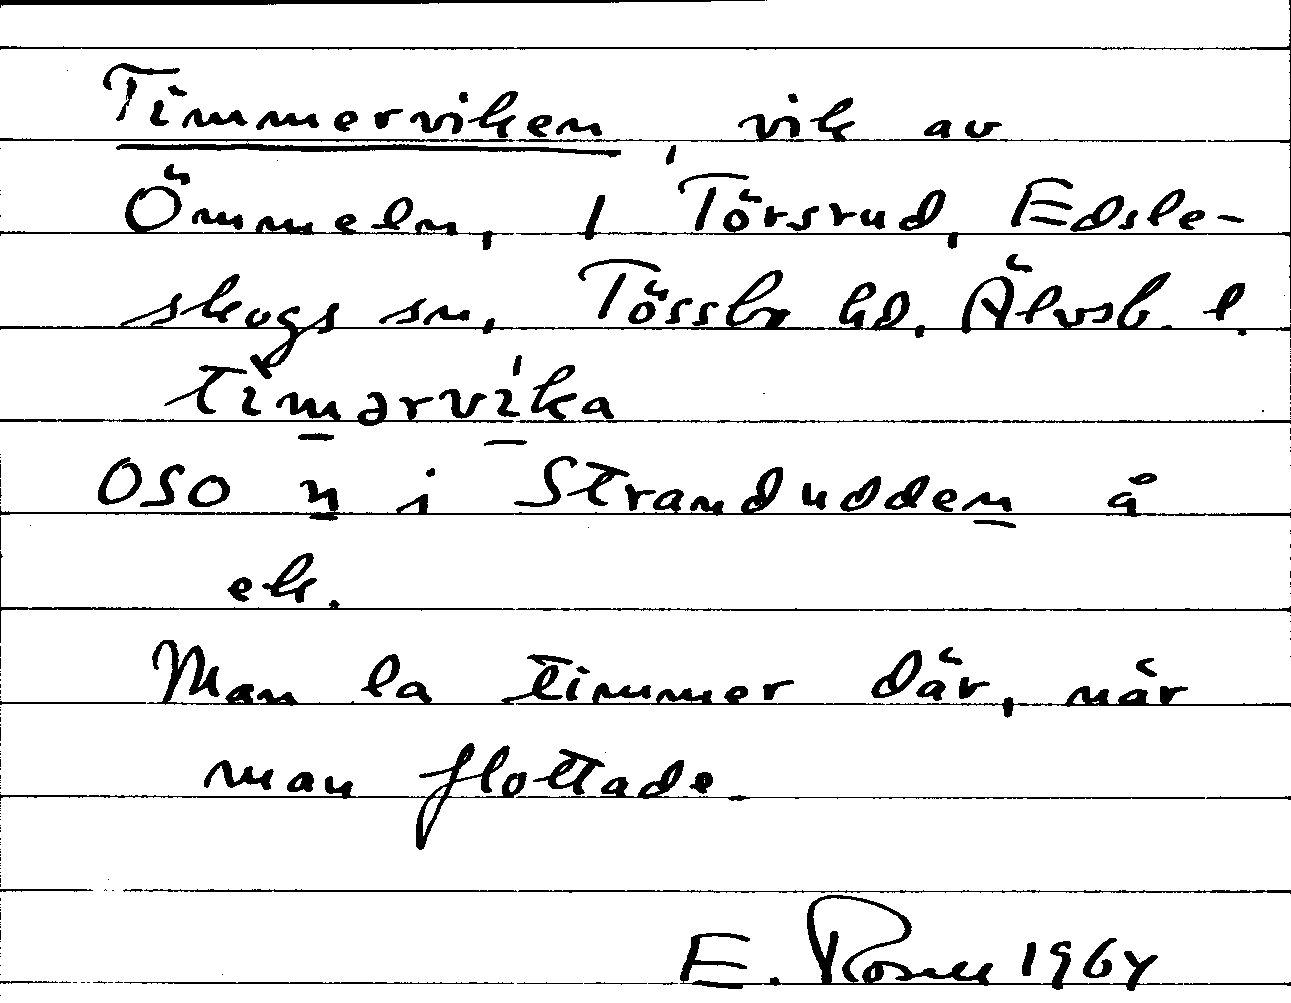 Timmerviken, vik av
Ömmeln, 1 Törsrud, Edsle-
skogs sn, Tössbo hd, Älvsb. l.
tìmərvíka
OSO n i Strandudden å
ek.
Man la timmer där, när
man flottade.
E. Rosell 1964